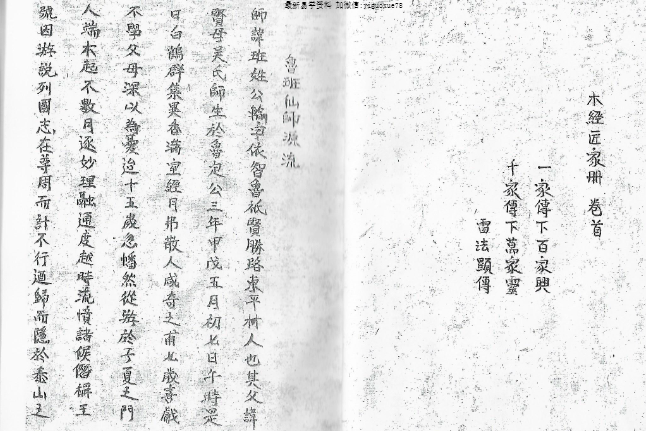 最新易学资料 加微信:yiguoxue78
木經匠家册 卷首
一家傳下百家興
千家傳下萬家寶
雷法顯傳
魯班仙師源流
師諱班姓公輸字依智魯祇賢勝路東平村人也其父諱
賢母吴氏師生於魯定公三年甲戌五月初七日午時是
日白鶴群集異香滿室經月弗散人咸奇之甫七歲喜戲
不學父母深以為憂迨十五歲忽幡然從游於子夏之門
人端木起不數月遂妙理融通度越時流憤諸侯僭稱王
號因游說列國志在尊周而計不行迺歸而隱於泰山之